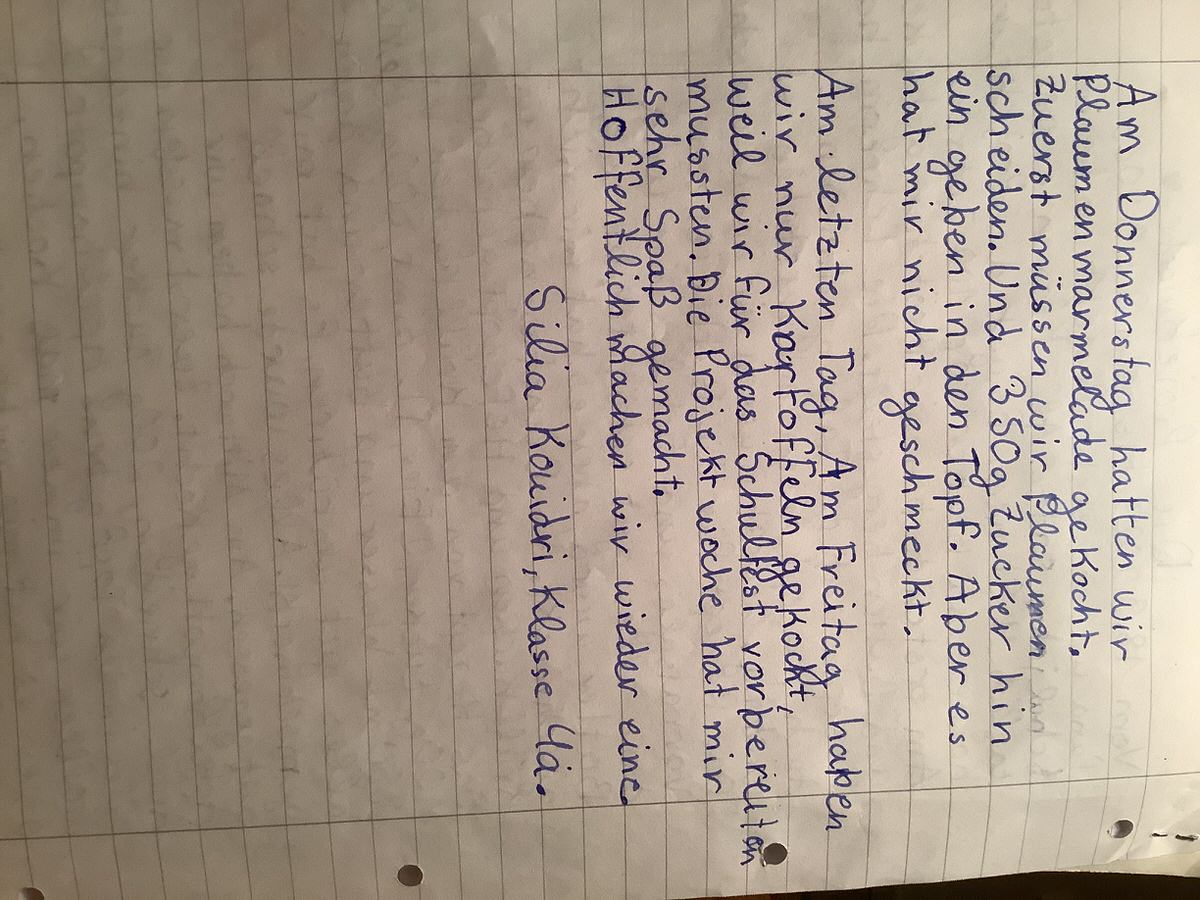 Am Donnerstag hatten wir
Plaumenmarmelade gekocht.
Zuerst müssen wir Plaumen
scheiden. Und 350g Zucker hin
ein geben in den Topf. Aber es
hat mir nicht geschmeckt.
Am letzten Tag, Am Freitag haben
wir nur Kartoffeln gekocht,
weil wir für das Schulfest vorbereiten
mussten. Die Projektwoche hat mir
sehr Spaß gemacht.
Hoffentlich machen wir wieder eine.
Silia Kouidri, Klasse 4a.